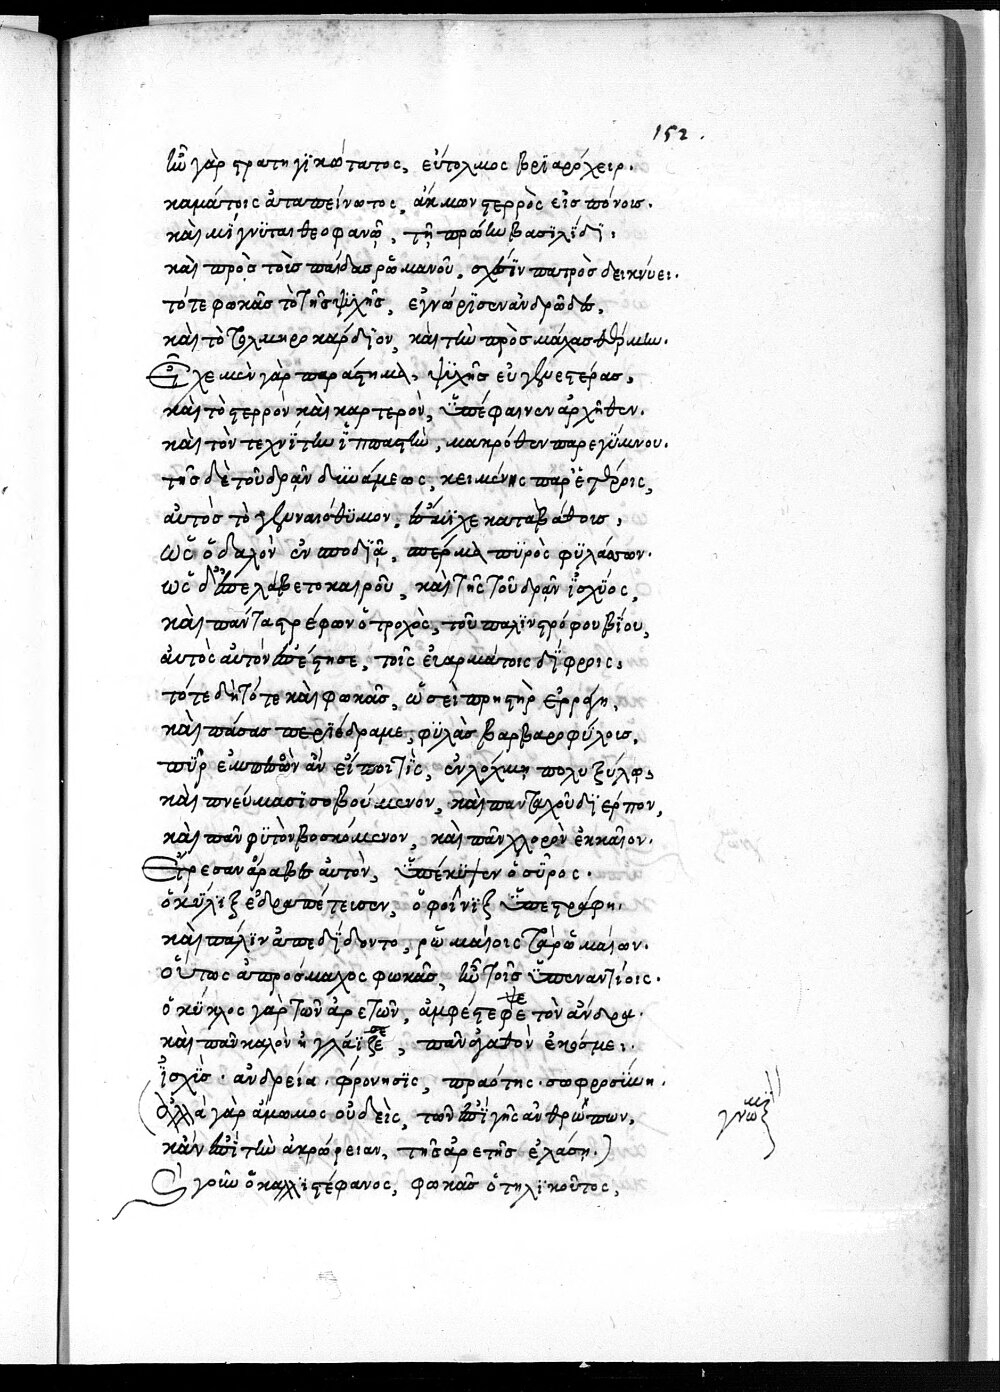 152.
ἦν γὰρ στρατηγικώτατος, εὔτολμος βριαρόχειρ.
καμάτοις ἀταπείνωτος, ἄκμων στερρὸς εἰς πόνους.
καὶ μίγνυται θεοφανῷ, τῇ πρώην βασιλίδι.
καὶ πρὸς τοὺς παῖδας ῥωμανοῦ, σχέσιν πατρὸς δεικνύει.
τότε φωκᾶς τὸ τῆς ψυχῆς, ἐγνώρισεν ἀνδρῶδες,
καὶ τὸ τολμηροκάρδιον, καὶ τὸ πρὸς μάχας θερμὸν.
εἶχε μὲν γὰρ παράστημα, ψυχῆς εὐγενεστέρας,
καὶ τὸ στερρὸν καὶ καρτερὸν, ὑπέφαινεν ἀρχῆθεν.
καὶ τὸν τεχνίτην ἱππαστὴν, μακρόθεν παρεγύμνου.
τῆς δὲ τοῦ δρᾶν δυνάμεως, κειμένης παρ' ἑτέροις,
αὐτὸς τὸ γενναιόθυμον, ἐπεῖχε καταβάθους,
ὡς ὁ δαλὸν ἐν σποδιᾷ, σπέρμα πυρὸς φυλάττων.
ὡς δ' ἐπελάβετο καιροῦ, καὶ τῆς τοῦ δρᾶν ἰσχύος,
καὶ πάντα στρέφων ὁ τροχὸς, τοῦ παλιντρόφου βίου,
αὐτὸς αὐτὸν ἐπέστησε, τοῖς ἐναρμάτοις δίφροις,
τότε δὴ τότε καὶ φωκᾶς, ὡσεὶ πρηστὴρ ἐρράγη,
καὶ πάσας περιέδραμε, φυλὰς βαρβαροφύλους,
πῦρ ἐμπεσὸν ἂν εἴποι τις, ἐν λόχμῃ πολυξύλῳ,
καὶ πνεύμασι σοβούμενον, καὶ πανταχοῦ διέρπον,
καὶ πᾶν φυτὸν βοσκόμενον, καὶ πᾶν χλωρὸν ἐκκαῖον.
εὗρεσαν ἄραβες αὐτὸν, ὑπέκυψεν ὁ σύρος.
ὁ κίλιξ ἐδραπέτευσεν, ὁ φοῖνιξ ὑπεστράφη.
καὶ πάλιν ἀπεδίδοντο, ῥωμαίοις τὰ ῥωμαίων.
οὕτως ἀπρόσμαχος φωκᾶς, ἦν τοῖς ὑπεναντίοις.
ὁ κύκλος γὰρ τῶν ἀρετῶν, ἀμφέστεφε τὸν ἄνδρα.
ψε
καὶ πᾶν καλὸν ἠγλάϊζε, πᾶν ἀγαθὸν ἐκόσμει.
σε
ἰσχὺς. ἀνδρεία. φρόνησις, πραότης. σωφροσύνη.
(ἀλλὰ γὰρ ἄμωμος οὐδεὶς, τῶν ἐπὶ γῆς ἀνθρώπων,
γνωμ
κἂν ἐπὶ τὴν ἀκρώρειαν, τῆς ἀρετῆς ἐλάσῃ.)
ὁ γοῦν ὁ καλλιστέφανος, φωκᾶς ὁ τηλικοῦτος,